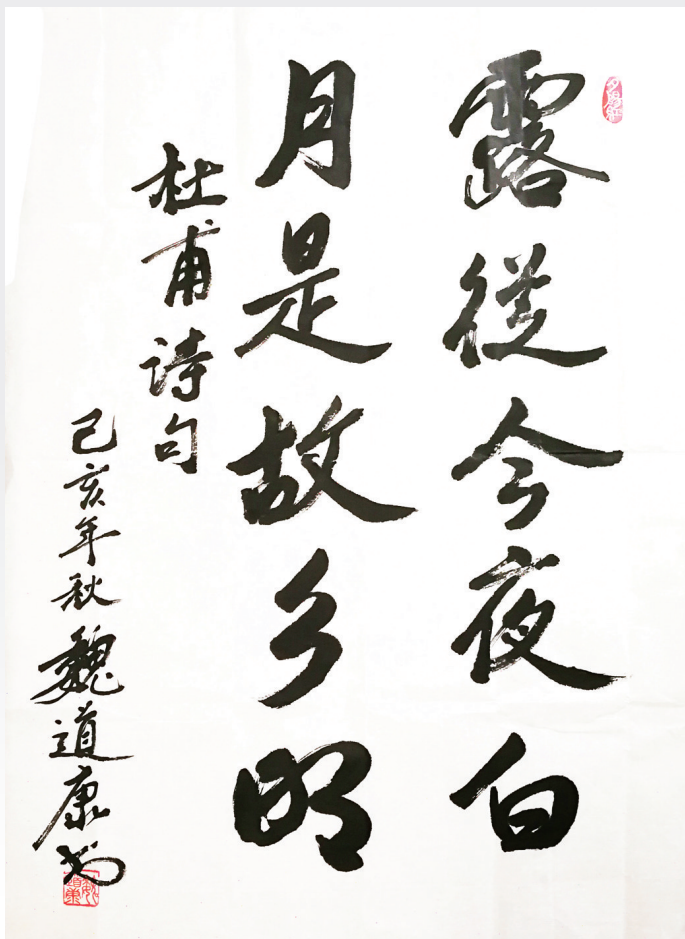 露從今夜白
月是故乡明
杜甫诗句
己亥年秋魏道康书